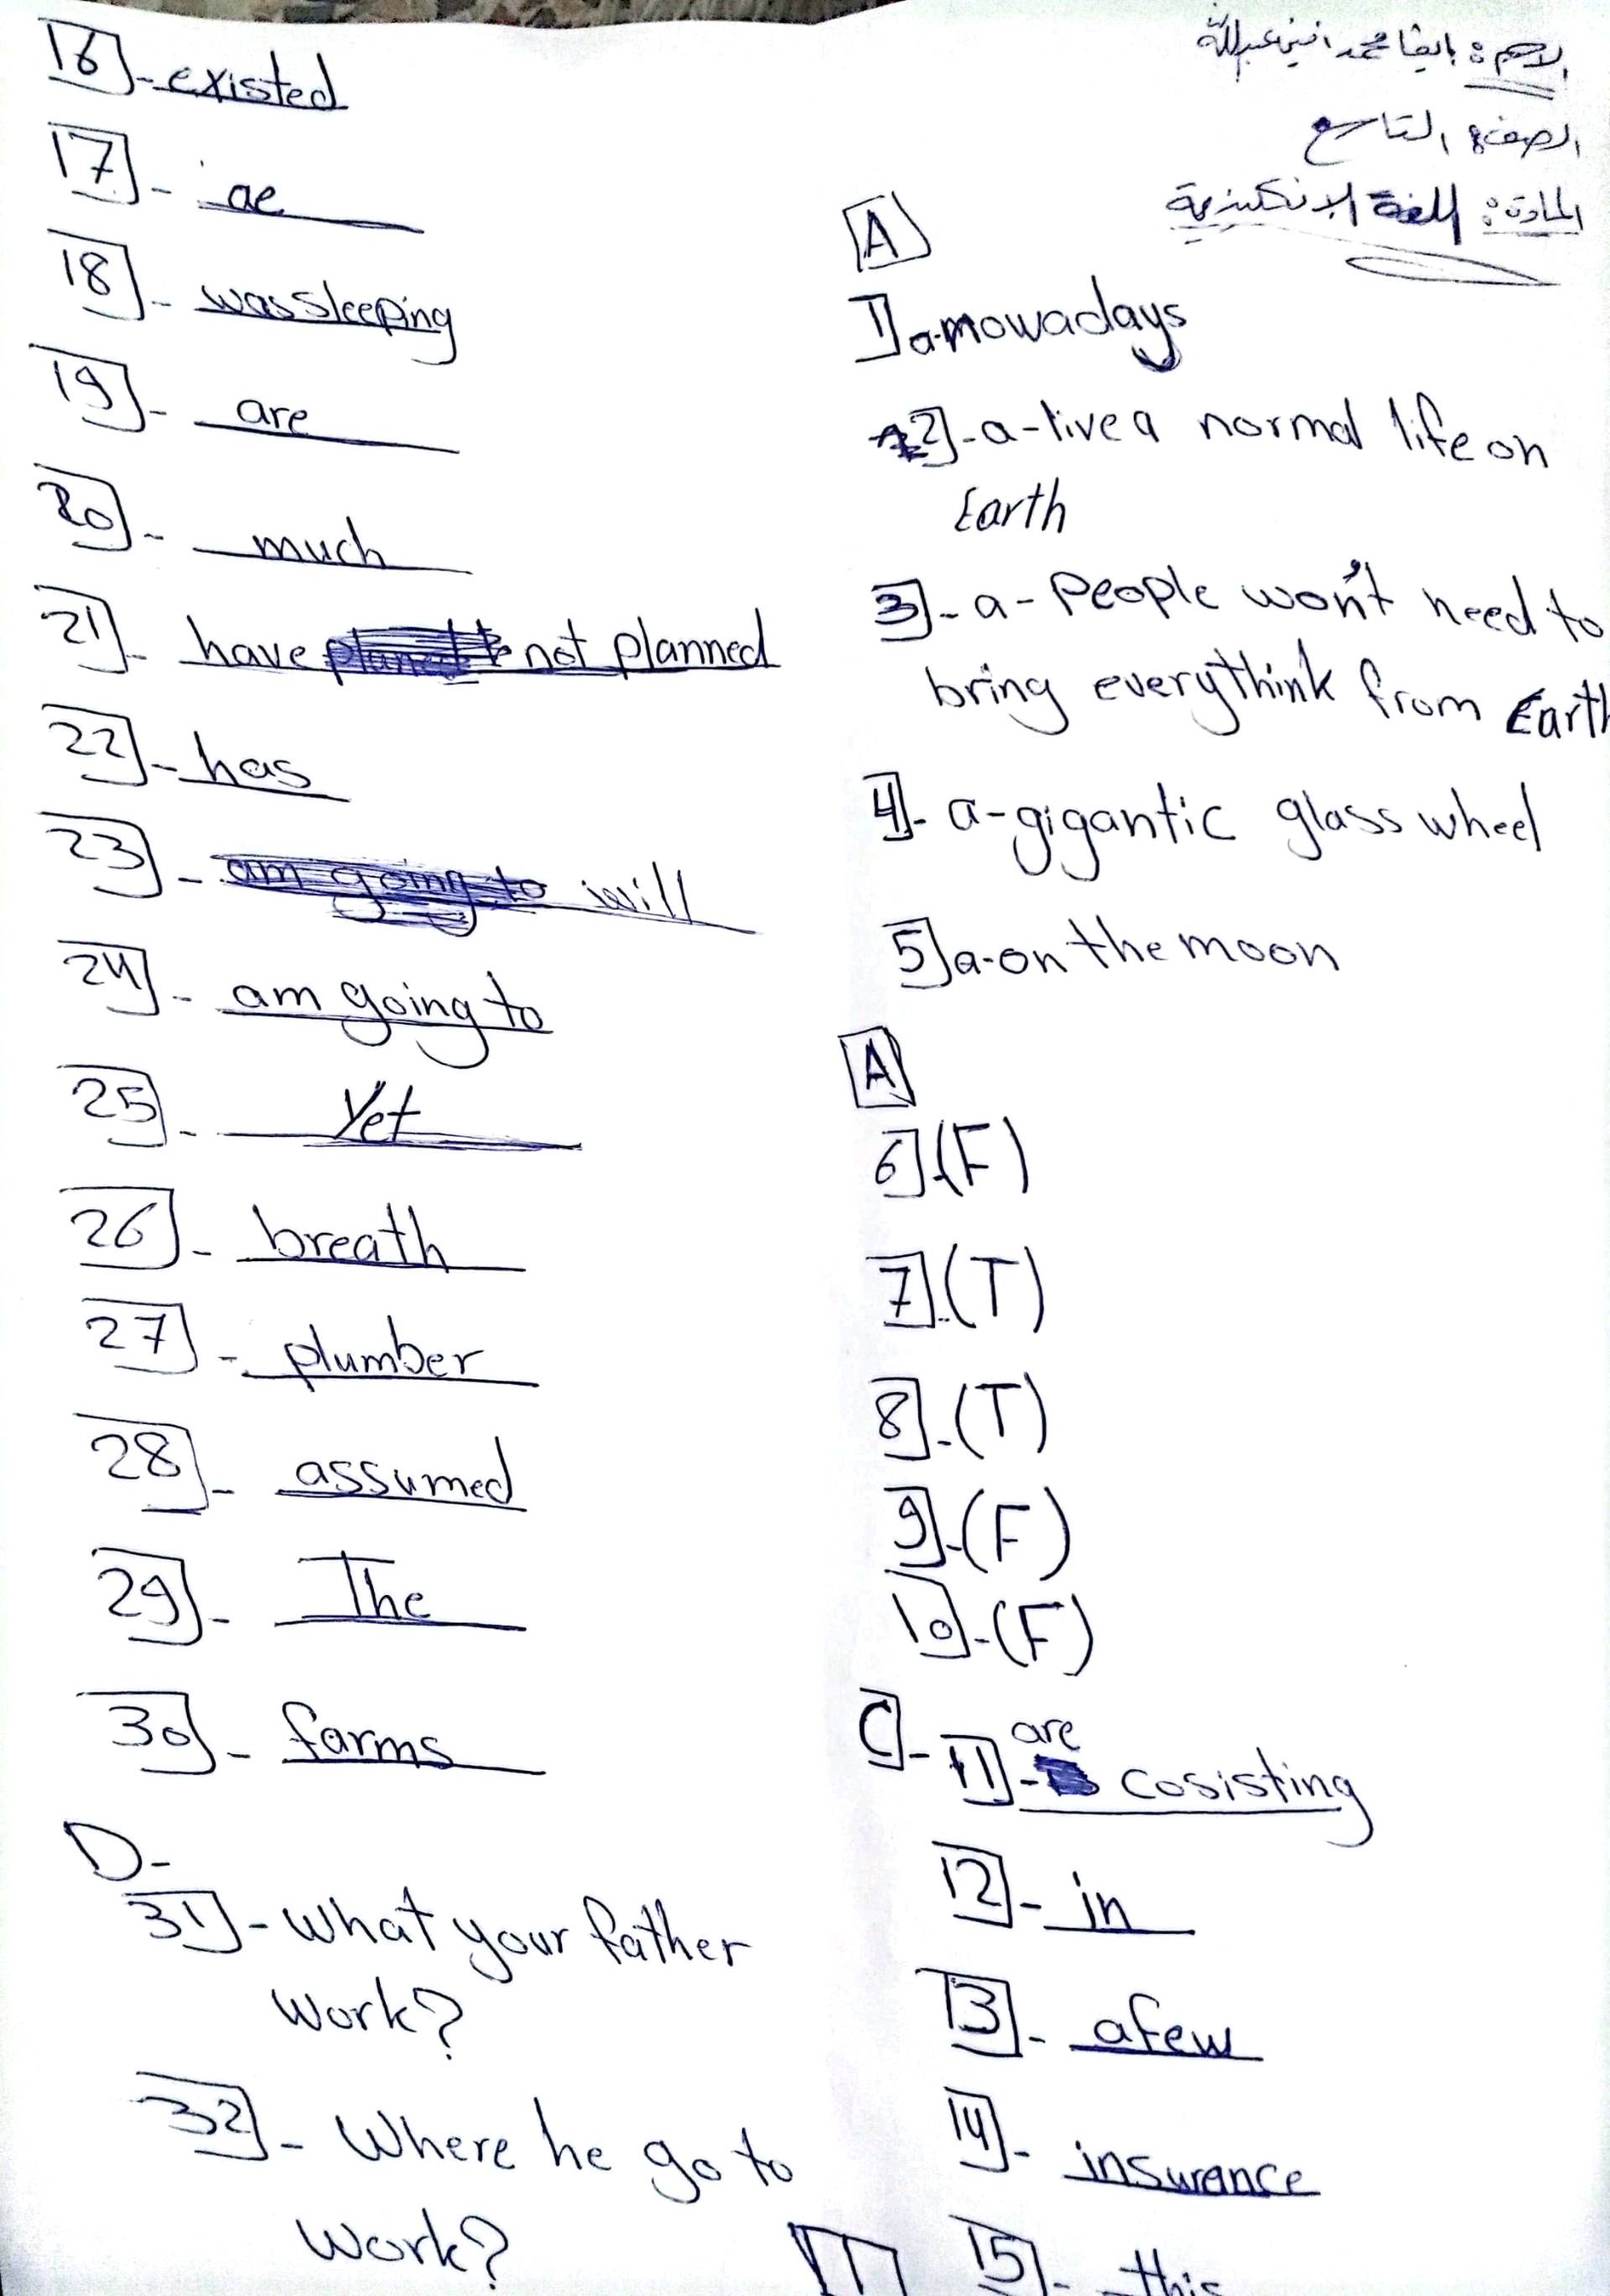 الاسم: ايفا محمد امين عبدالله
الصف: التاسع
المادة: اللغة الإنكليزية
A
1]a-nowadays
2]-a-live a normal life on
Earth
3]-a-People won't need to
bring everythink from Earth
4]-a-gigantic glass wheel
5]a-on the moon
A
6](F)
7].(T)
8]-(T)
9]-(F)
10]-(F)
C]-11]- are cosisting
12]- in
13]- a few
14]- insurance
15]- this
16]-existed
17]- ae
18]- was sleeping
19]- are
20]- much
21]- have not planned
22]-has
23]- am going to will
24]- am going to
25]- Yet
26]- breath
27]- plumber
28]- assumed
29]- The
30]- farms
D-
31]-what your father
work?
32]- Where he go to
work?